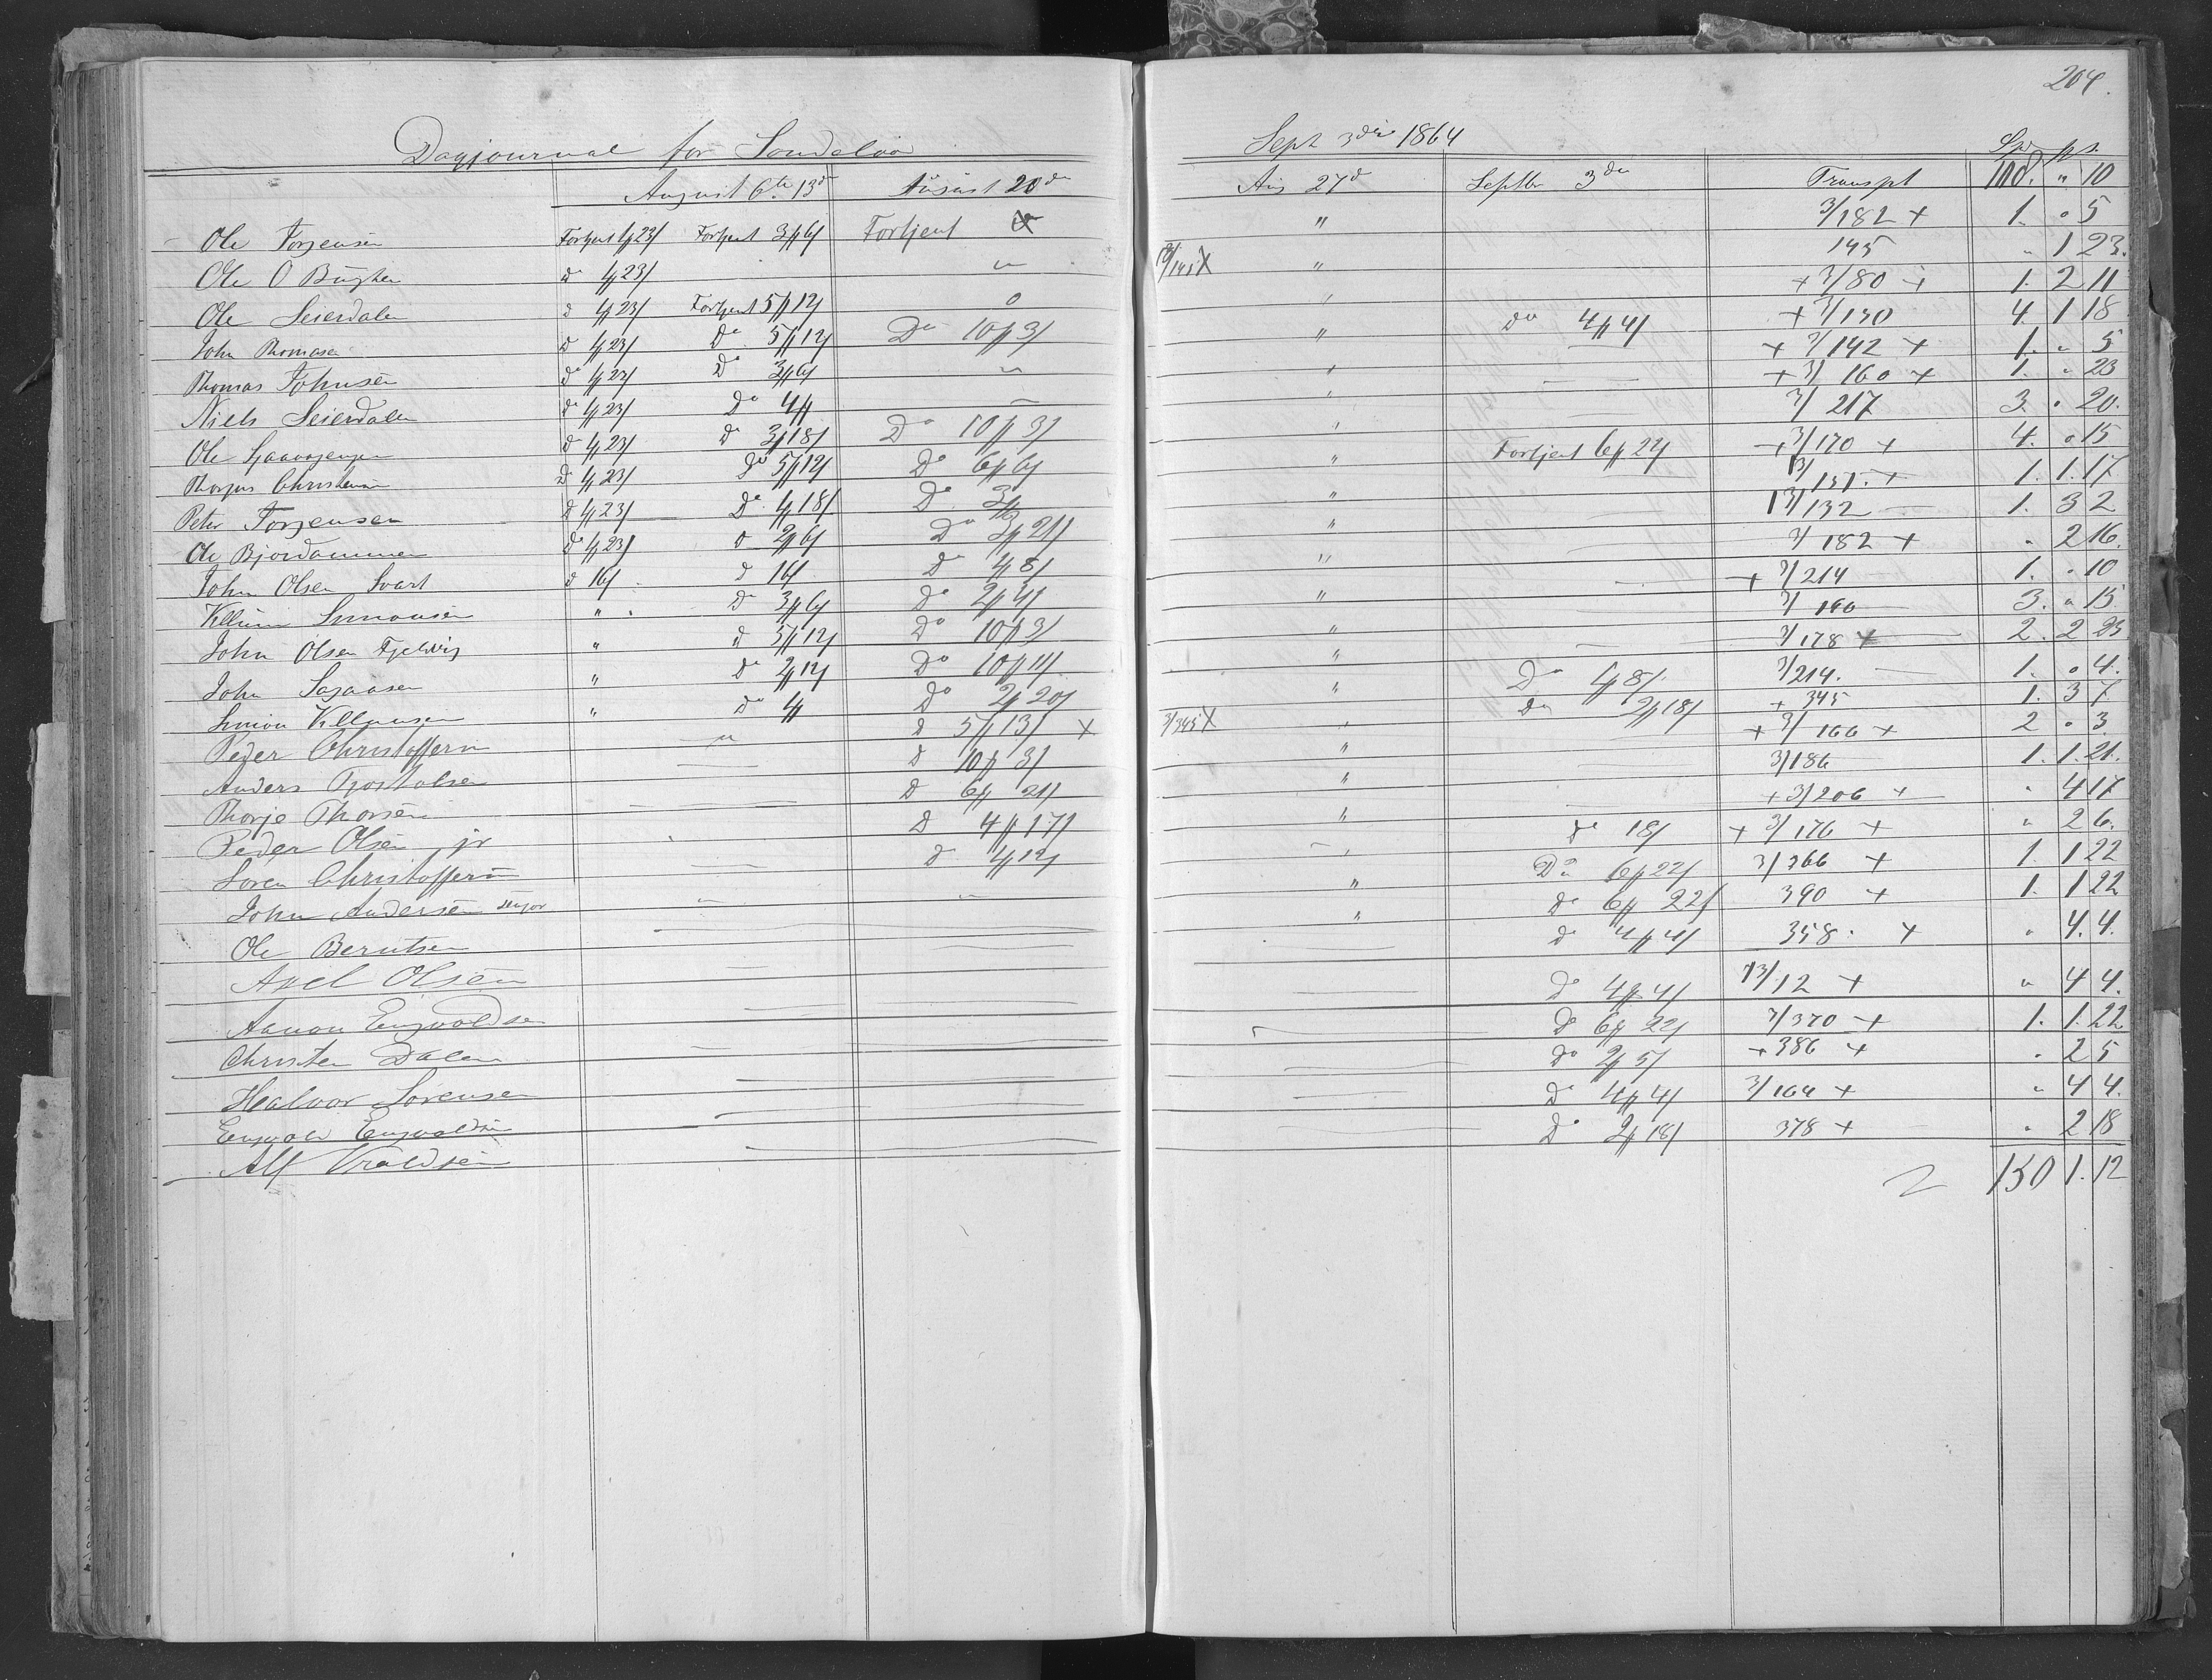 204.
Dagjournal for Sondeløv Sept 3die 1864
Spd. ƒ s.
August 6te 13de August 20de Aug 27de Septbr 3die Transpt 118. " 10
Ole Torjensen Fortjent 4ƒ23/ Fortjent 3ƒ6/ Fortjent " 3/182 + 1. " 5
Ole O Do 4ƒ23/ " 145 " 1 23.
Ole Seierdalen Do 4ƒ23/ Fortjent 5ƒ12/ " + 3/80 + 1. 2 11
John Thomasen Do 4ƒ23/ Do 5ƒ12/ Do 10ƒ3/ " Do 4ƒ4/ + 3/130 4. 1 18
Thomas Johnsen Do 4ƒ23/ Do 3ƒ6/ " + 3/142 + 1. " 5
Niels Seierdalen Do 4ƒ23/ Do 4ƒ " + 3/160 + 1. " 23
Ole Do 4ƒ23/ Do 3ƒ18/ Do 10ƒ3/ " 3/217 3. " 20.
Christensen Do 4ƒ23/ Do 5ƒ12/ Do 6ƒ6/ " Fortjent 6ƒ22/ + 3/170 + 4. " 15
Peter Torjensen Do 4ƒ23/ Do 4ƒ18/ Do " 1. 1. 17
Ole Bjordammen Do 4ƒ23/ Do 2ƒ6/ Do 3ƒ21/ " 13/132 1. 3 2
John Olsen Svart Do 16/ Do 16/ Do 4ƒ8/ " 3/182 + " 2 16.
Simonsen " Do 3ƒ6/ Do 2ƒ4/ " + 3/214 1. " 10
John Olsen Fjeldvig " Do 5ƒ12/ Do 10ƒ3/ " 3. " 15.
John " Do 2ƒ12/ Do 10ƒ11/ " 3/178 + 2. 2 23
Simon " Do 4ƒ Do 2ƒ20/ " Do 4ƒ8/ 3/214. 1. " 4.
Peder Christoffersen " Do 5ƒ13/ + 3/345 X " Do 2ƒ18/ + 345 1. 3 7
Anders Do 10ƒ3/ " + 3/166 + 2 " 3.
Thorje Thorsen Do 6ƒ21/ " 3/186 1. 1. 21.
Peder Olsen jr Do 4ƒ17/ " + 3/206 + " 4 17
Søren Christoffersen Do 4ƒ12/ " Do 18/ + 3/176 + " 2 6.
John Andersen " " Do 6ƒ22/ 3/366 + 1. 1 22
Ole Berntsen " Do 6ƒ22/ 390 + 1. 1 22
Axel Olsen Do 4ƒ4/ 358 + " 4. 4.
Aanon Engvoldsen Do 4ƒ4/ 13/12 + " 4 4.
Christen Dalen Do 6ƒ22/ 3/370 + 1. 1. 22
Halvor Sørensen Do 2ƒ5/ + 386 + " 2 5
Engvold Engvoldsen Do 4ƒ4/ 3/164 + " 4 4.
Alf Do 2ƒ18/ 378 + " 2 18
150 1. 12